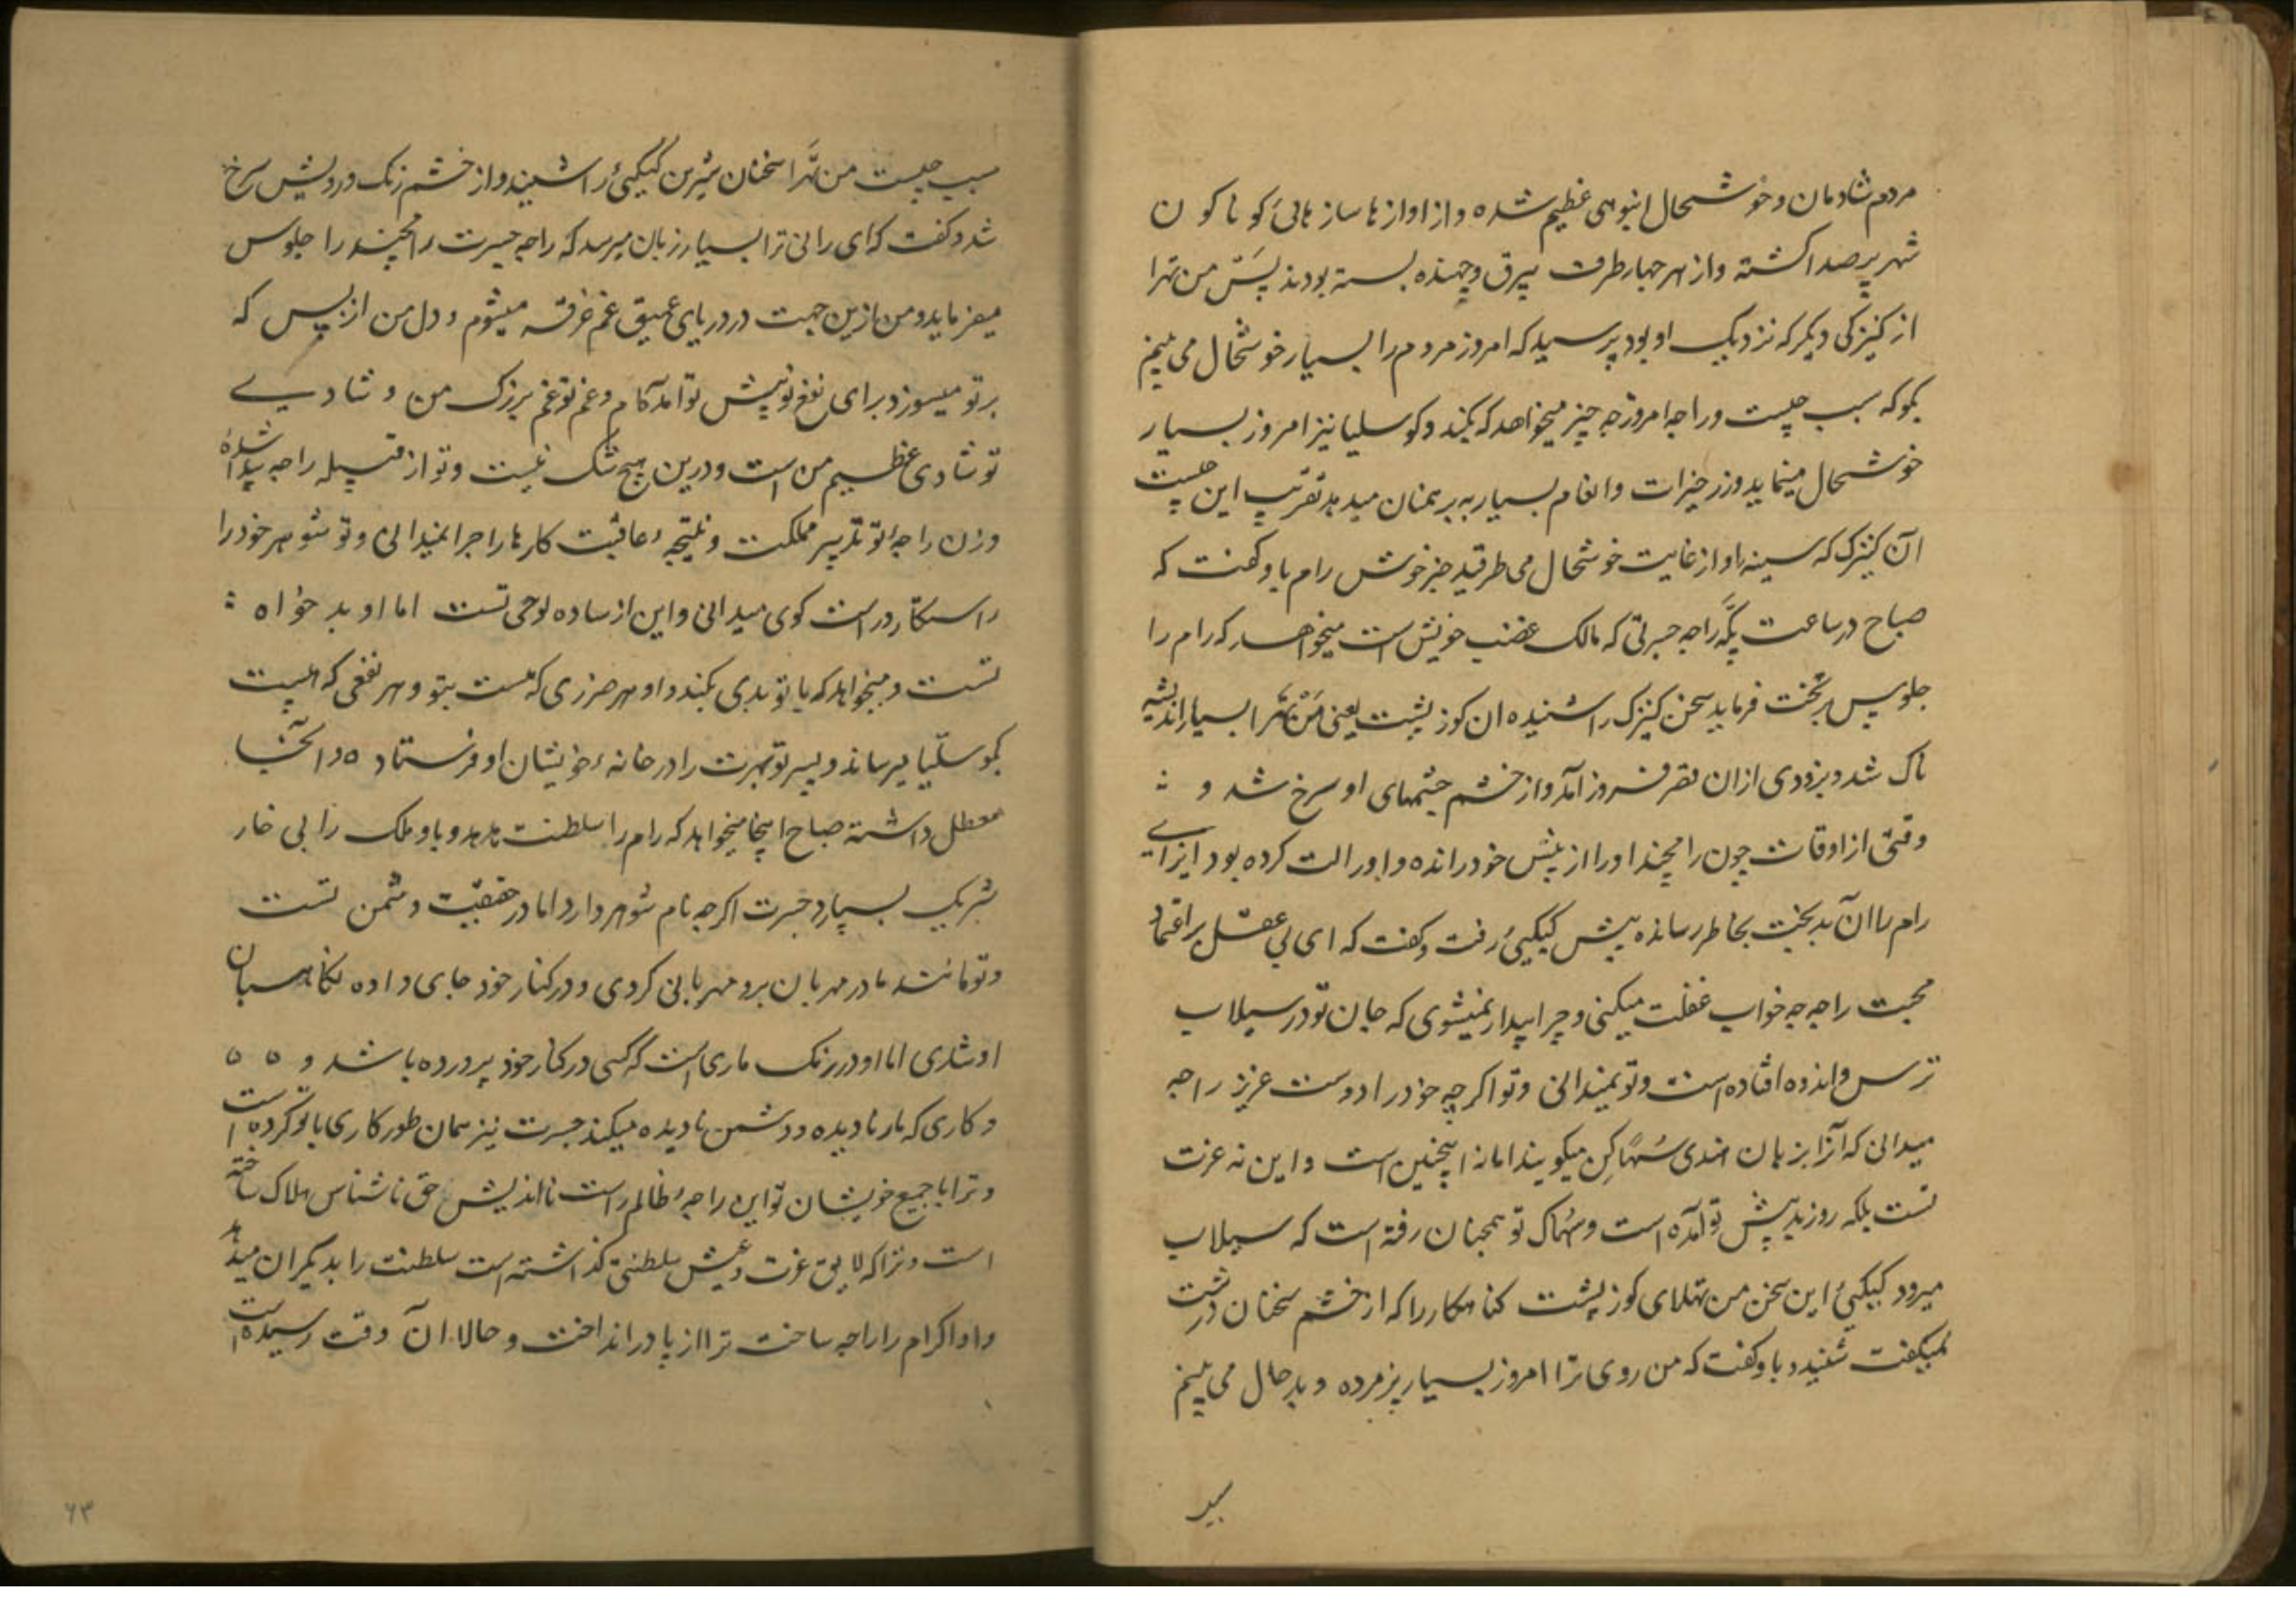 مردم شادمان و خوشحال انبوهی عظیم شده و از اوازها ساز هائ کوناکون
شهر پرصدا کشته و از هر چهار طرف بیرق و جهنده بسته بودند پس من تهرا
از کنیزکی دیکر که نزدیک او بود پرسید که امروز مردم را بسیار خوشحال می بینم
بکو که سبب چیست و راجه امروز چه چیز میخواهد که بکند و کوسلیا نیز امروز بسیار
خوشحال مینماید و زر خیرات و انعام بسیار به برهمنان میدهد تقریب این چیست
آن کنیزک که سینه او از غایت خوشحال می طرقید خبر خوش رام باو کفت که
صباح در ساعت پکه راجه جسرتی که مالک غضب خویش است میخواهد که رام را
جلوس بر تخت فرماید سخن کنیزک را شنیده ان کوز پشت یعنی من تهرا بسیار اندیشه
ناک شد و بزودی ازان قصر فروز آمد و از خشم چشمهای او سرخ شد و
وقتی از اوقات چون رامچند او را از پیش خود رانده و او را لت کرده بود ایزای
رام را ان بدبخت بخاطر رسانده پیش کیکیئ رفت و کفت که ای بی عقل بر اعتماد
محبت راجه چه خواب غفلت میکنی و چرا بیدار نمیشوی که جان تو در سیلاب
ترس و اندوه افتاده است و تو نمیدانی و تو اکرچه خود را دوست عزیز راجه
میدانی که آنرا بزبان هندی سهاکن میکویند اما نه اینچنین است و این نه عزت
تست بلکه روز بد پیش تو آمده است و سهاک تو همچنان رفته است که سیلاب
میرود کیکیئ این سخن من تهلای کوز پشت کناهکار را که از خشم سخنان درشت
میکفت شنید و باو کفت که من روی ترا امروز بسیار پژمرده و بد حال می بینم
سبب
سبب چیست من تهرا سخنان شیرین کیکیئ را شنید و از خشم رنک و رویش سرخ
شد و کفت که ای رانی ترا بسیار زیان میرسد که راجه جسرت رامچند را جلوس
میفرماید و من ازین جهت در دریای عمیق غم غرقه میشوم و دل من از بس که
بر تو میسوزد برای نفع تو پیش تو آمده ام و غم تو غم بزرک من و شادی
تو شادی عظیم من است و درین هیچ شک نیست و تو از قبیله راجه پیدا شدۀ
و زن راجه تو تدبیر مملکت و نتیجه عاقبت کارها را چرا نمیدانی و تو شوهر خود را
راستکار و راست کوی میدانی و این از ساده لوحی تست اما او بد خواه
تست و میخواهد که با تو بدی بکند و او هر ضرری که هست بتو و هر نفعی که هست
بکوسلیا میرساند و پسر تو بهرت را در خانه خویشان او فرستاده و آنجا
معطل داشته صباح اینجا میخواهد که رام را سلطنت بدهد و باو ملک را بی خار
شریک بسپارد جسرت اکرچه نام شوهر دارد اما در حقیقت دشمن تست
و تو مانند مادر مهربان برو مهربانی کردی و در کنار خود جای داده نکاهبان
او شدی اما او در رنک ماری است که کسی در کنار خود پرورده باشد و
و کاری که مار نادیده و دشمن نادیده میکند جسرت نیز همان طور کاری با تو کرده است
و ترا با جمیع خویشان تو این راجه ظالم راست نااندیش حق ناشناس هلاک ساخته
است و ترا که لایق عزت و عیش سلطنتی کذاشته است سلطنت را بدیکران میدهد
و او اکر رام را راجه ساخت ترا از پا در انداخت و حالا ان وقت رسیده است
۶۳